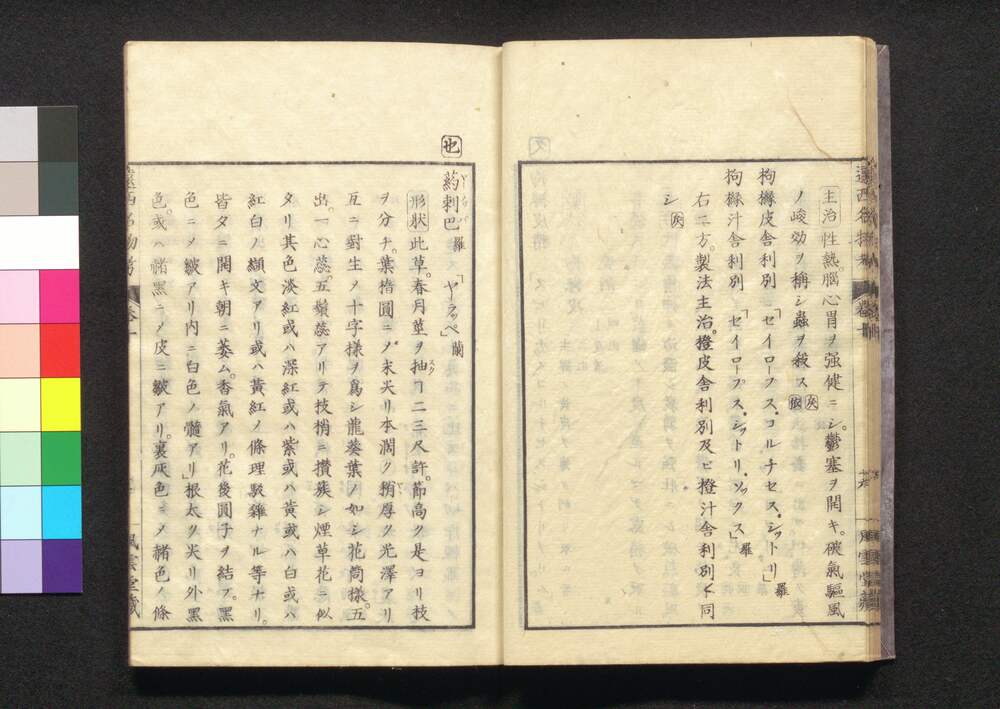 主治性熱。腦心胃ヲ强健ニシ。鬱塞ヲ開キ。破氣驅風
ノ峻効ヲ稱シ蟲ヲ殺ス
拘櫞皮舎利別「セイローフス・コルチセス・シットリ」羅
拘櫞汁舎利別「セイロープス・シットリ・ソックス」羅
右二方。製法主治。橙皮舎利別及ヒ橙汁舎利別ト同
シ
也
葯剌巴 羅「ヤラッペ」蘭
形狀此草。春月莖ヲ抽コ二三尺許。節高ク是ヨリ技
ヲ分チ。葉楕圓ニメ末尖リ本濶ク稍厚ク光澤アリ
互ニ對生メ十字樣ヲ爲シ龍葵葉ノ如シ花筒樣。五
出。一心蕊。五鬚蕊アリテ技梢ニ攢簇シ煙草花ニ似
タリ其色淡紅或ハ深紅或ハ紫或ハ黄或ハ白或ハ
紅白ノ纈文アリ或ハ黄紅ノ條理駁雜ナル等ナリ。
皆夕ニ開キ朝ニ萎ム。香氣アリ。花後圓子ヲ結フ。黑
色ニメ皺アリ内ニ白色ノ髓アリ」根太ク尖リ外黑
色。或ハ赭黑ニメ皮ニ皺アリ。裏灰色ニメ赭色ノ條
風雲堂藏